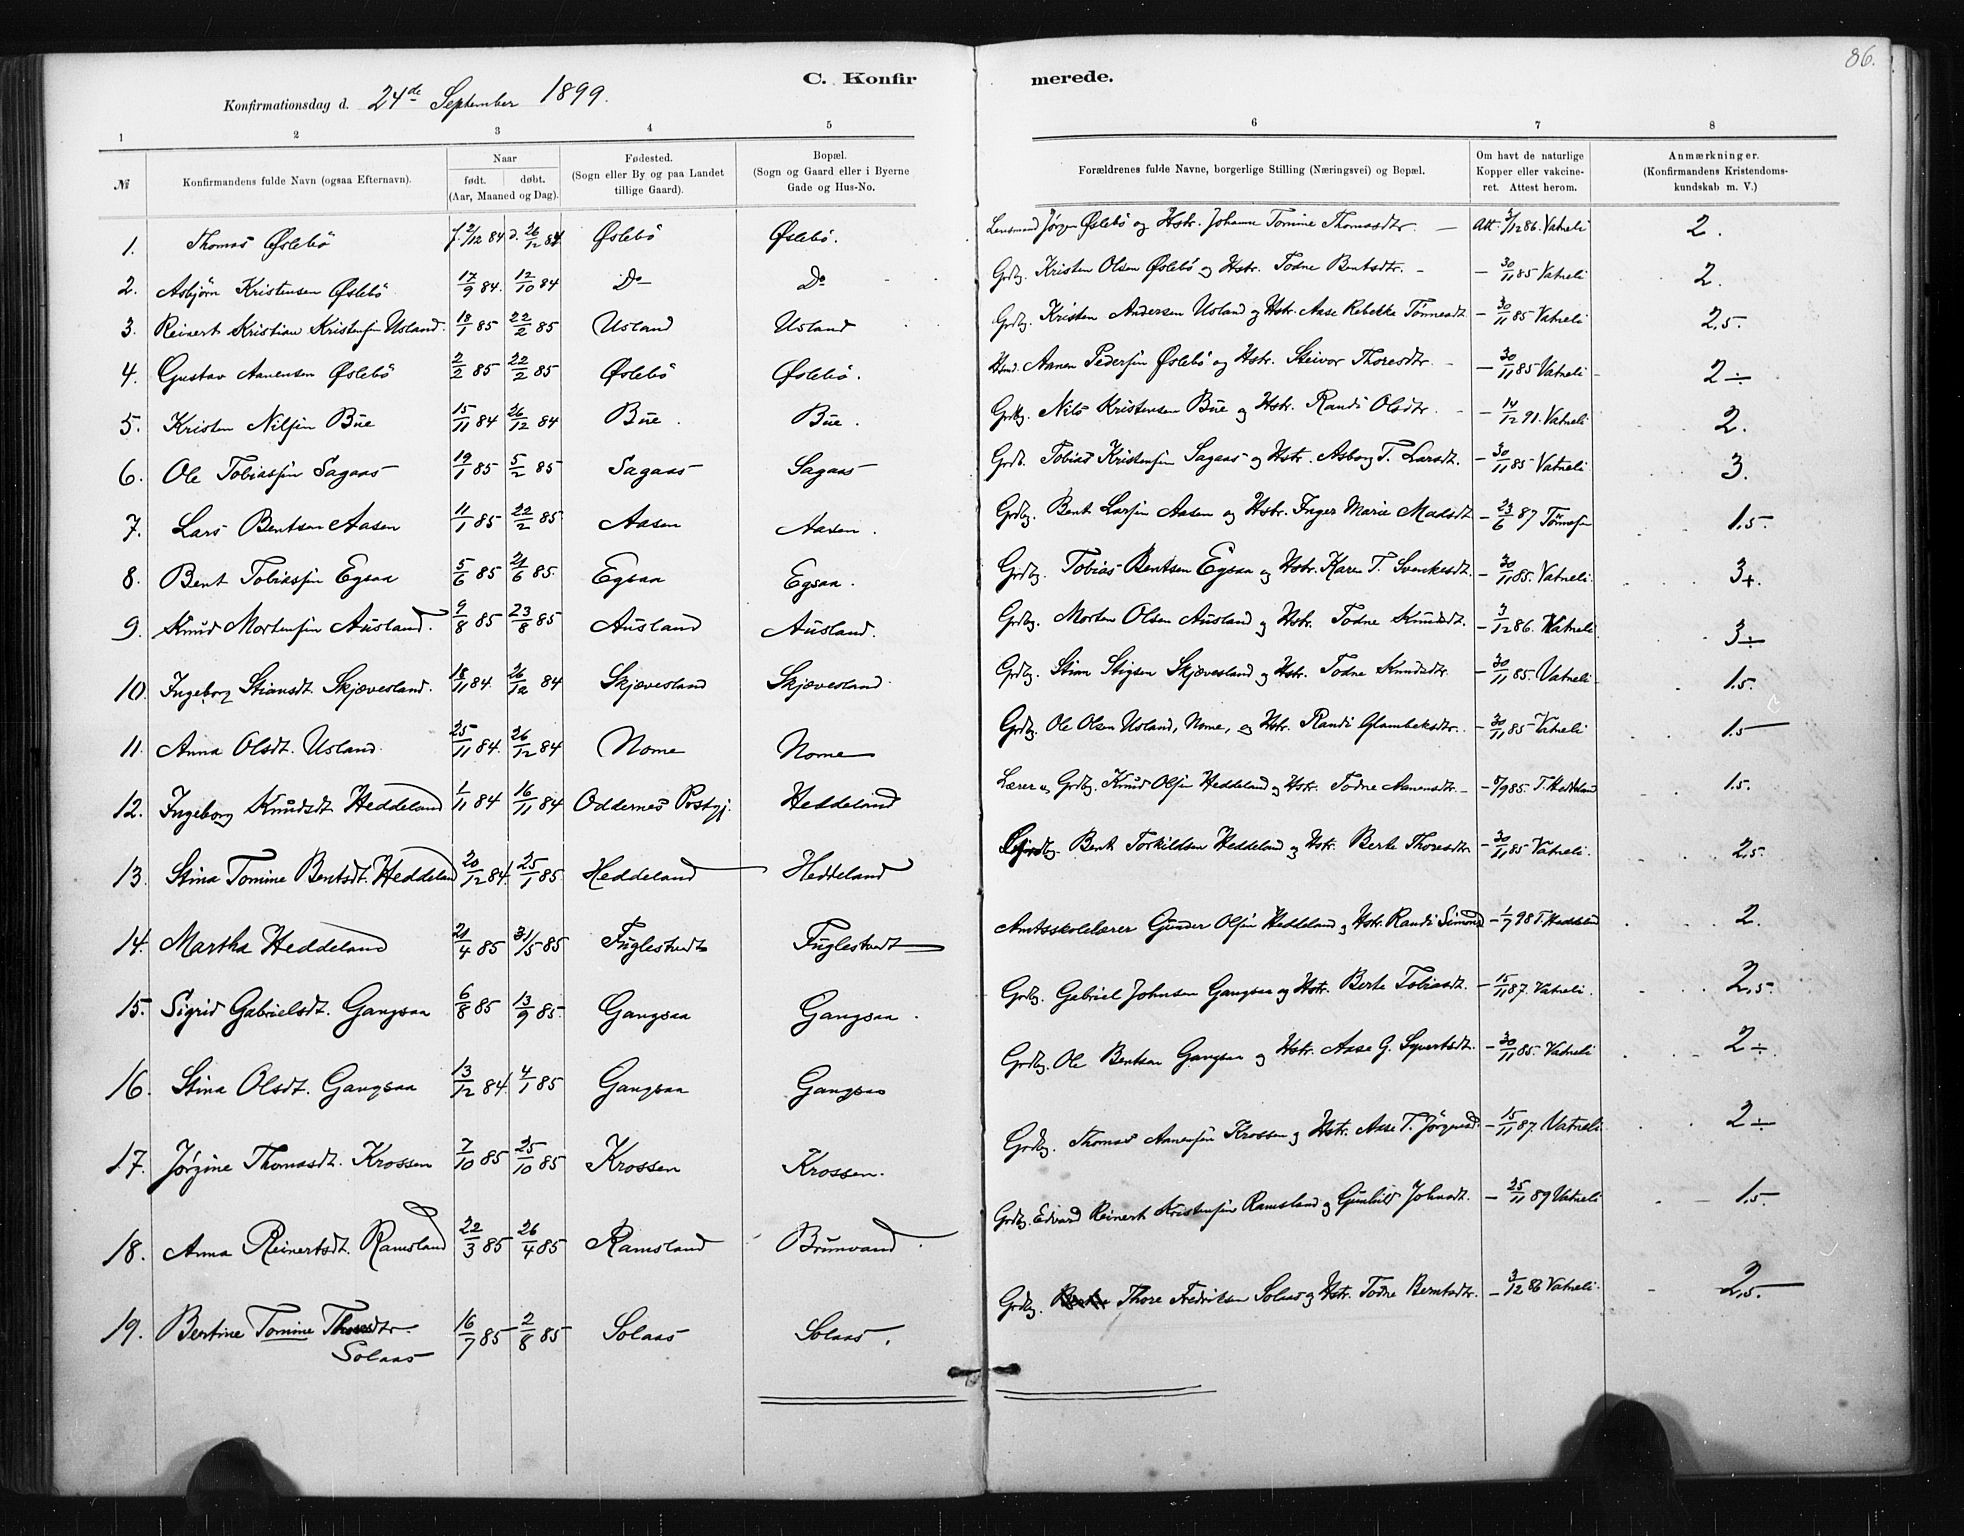 86.
C. Konfirmerede.
Konfirmationsdag d. 24de September 1899.
1 2 3 4 5 6 7 8
№ Konfirmandens fulde Navn (ogsaa Efternavn). Naar født. døbt. (Aar, Maaned og Dag). Fødested. (Sogn eller By og paa Landet tillige Gaard). Bopæl. (Sogn og Gaard eller i Byerne Gade og Hus-No. Forældrenes fulde Navne, borgerlige Stilling (Næringsvei) og Bopæl. Om havt de naturlige Kopper eller vakcineret. Attest herom. Anmærkninger. (Konfirmandens Kristendomskundskab m. V.)
1. Thomas Øslebö f. 2/12 84 d. 26/12 84 Øslebö Øslebö. Lensmand Jørgen Øslebö og Hstr. Johanne Tomine Thomasdtr. Att. 3/12 86. Vatneli 2.
2. Asbjörn Kristensen Øslebö 17/9 84. 12/10 84 Do Do Grdbg. Kristen Olsen Øslebö og Hstr. Todne Bentsdtr. - 30/11 85 Vatneli 2.
3. Reinert Kristian Kristensen Usland. 18/1 85 22/2 85 Usland Usland Grdbg. Kristen Andersen Usland og Hstr. Aase Rebekke Tönnesdt - 30/11 85 Vatneli 2,5.
4. Gustav Aanensen Øslebö 2/2 85 22/2 85 Øslebö Øslebö. Hsmd. Aanen Pedersen Øslebö og Hstr. Steivor Thoresdtr. - 30/11 85 Vatneli 2 ÷
5. Kristen Nilsen Bue 15/11 84 26/12 84 Bue. Bue. Grdbg. Nils Kristensen Bue og Hstr. Randi Olsdtr. - 14/12 91. Vatneli 2.
6. Ole Tobiassen Sagaas 19/1 85 5/2 85 Sagaas Sagaas Grdb. Tobias Kristensen Sagaas og Hstr. Asborg T. Larsdt. - 30/11 85 Vatneli 3.
7. Lars Bentsen Aasen 11/1 85 22/2 85 Aasen Aasen. Grdbg. Bent Larsen Aasen og Hstr. Inger Marie Madsdt - 23/6 87 Tönnesen 1.5.
8. Bent Tobiassen Egsaa 5/6 85 21/6 85. Egsaa Egsaa. Grdbg. Tobias Bentsen Egsaa og Hstr. Karen T. Svenkesdt. - 30/11 85. Vatneli 3+.
9. Knud Mortensen Ausland. 9/8 85 23/8 85 Ausland Ausland. Grdbg. Morten Olsen Ausland og Hstr. Todne Knudsdt. - 3/12 86. Vatneli 3 ÷
10. Ingeborg Stiansdt. Skjævesland. 18/11 84. 26/12 84 Skjævesland Skjævesland. Grdbg. Stian Stigsen Skjævesland og Hstr. Todne Knudsdtr. - 30/11 85. Vatneli 1.5.
11. Anna Olsdt. Usland. 25/11 84. 26/12 84 Nome Nome Grdbg. Ole Olsen Usland, Nome, og Hstr. Randi Glambeksdtr. - 30/11 85 Vatneli 1.5
12. Ingeborg Knudsdt. Heddeland 1/11 84 16/11 84 Oddernes Prstgj. Heddeland Lærer og Grdbg. Knud Olsen Heddeland og Hstr. Todne Aanensdtr. - 8/9 85 T. Heddeland 1.5.
13. Stina Tomine Bentsdt. Heddeland 20/12 84. 25/1 85 Heddeland Heddeland Grdbg. Bent Torkildsen Heddeland og Hstr. Berte Thoresdtr - 30/11 85 Vatneli. 2,5.
14. Martha Heddeland 21/4 85 31/5 85 Fuglestvedt Fuglestvedt Amtsskolelærer Gunder Olsen Heddeland og Hstr. Randi Simonsd - 1/7 98 T. Heddeland 2.
15. Sigrid Gabrielsdt. Gangsaa 6/8 85 13/9 85. Gangsaa Gangsaa. Grdbg. Gabriel Johnsen Gangsaa og Hstr. Berte Tobiasdt. - 15/11 87. Vatneli. 2,5.
16. Stina Olsdt. Gangsaa 13/12 84. 4/1 85 Gangsaa Gangsaa Grdbg. Ole Bentsen Gangsaa og Hstr. Aase G. Syvertsdt. - 30/11 85. Vatneli 2 ÷.
17. Jørgine Thomasdt. Krossen 7/10 85 25/10 85 Krossen Krossen. Grdbg. Thomas Aanensen Krossen og Hstr. Aase T. Jörgensd. - 15/11 87. Vatneli. 2 ÷
18. Anna Reinertsdt. Ramsland 22/3 85 26/4 85 Ramsland Brunvand. Grdbg. Edvard Reinert Kristensen Ramsland og Gunhild Johnsdt. - 25/11 89 Vatneli 1.5
19. Bertine Tomine Thoresdtr. Solaas 16/7 85 2/8 85 Solaas Solaas. Grdbg. Thore Fredriksen Solaas og Hstr. Todne Berntsdtr. - 3/12 86 Vatneli. 2,5.